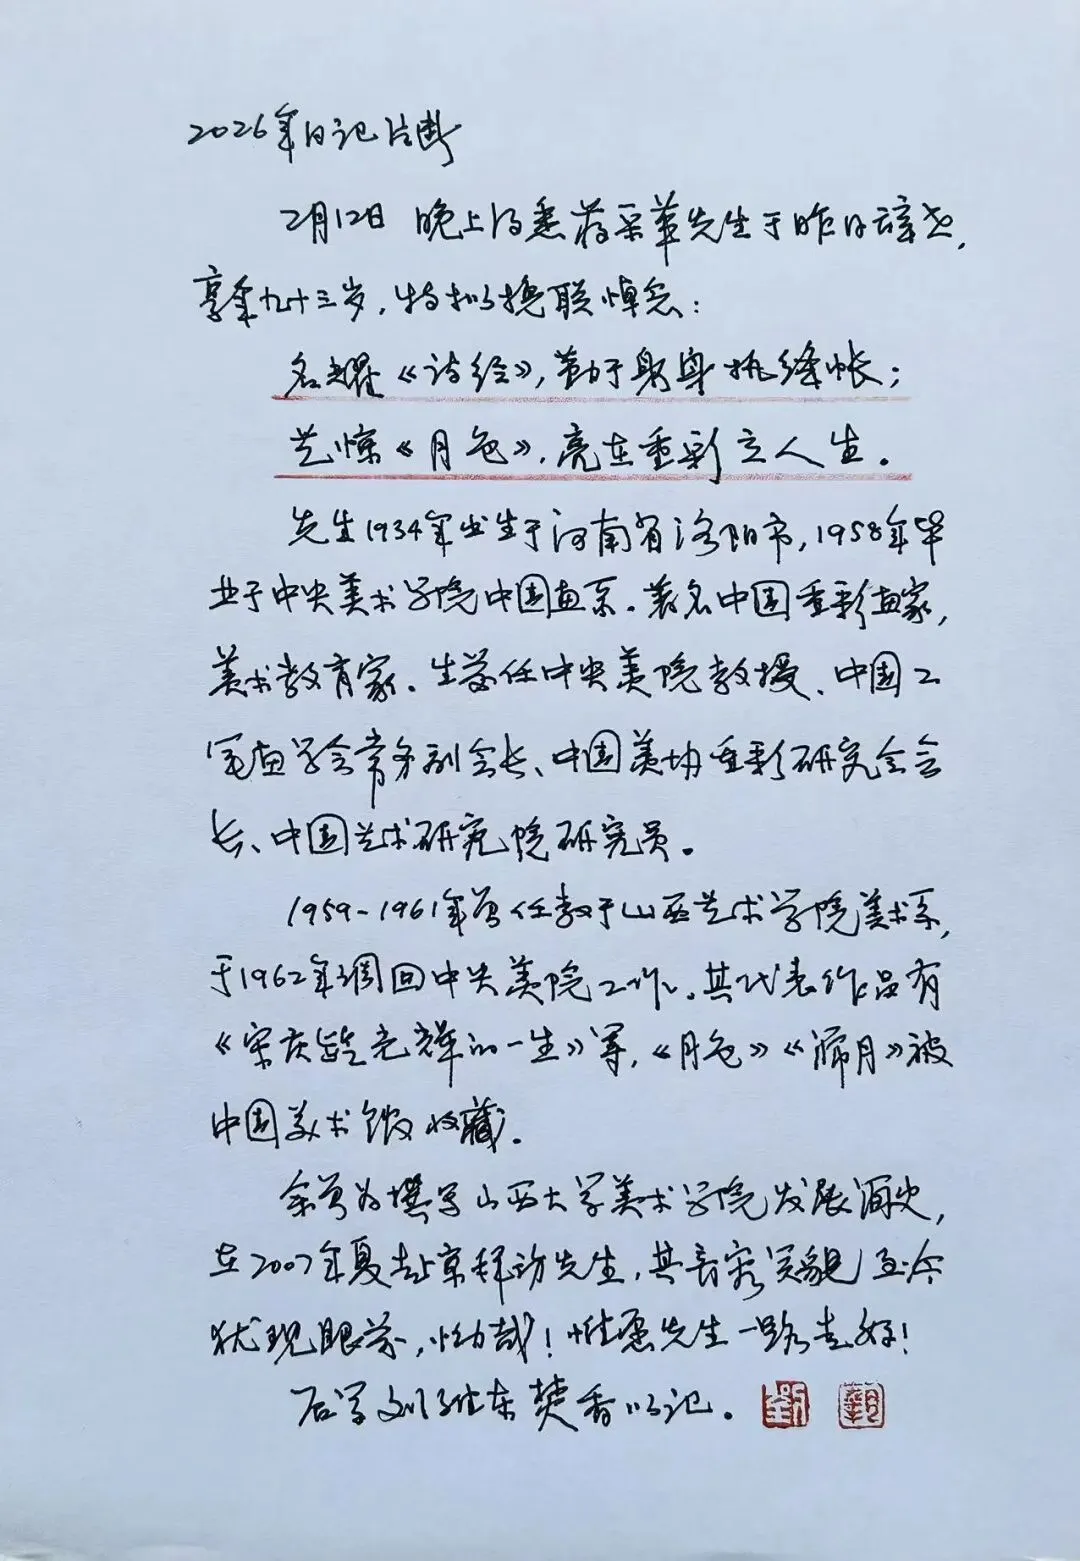 2026年日记片断
2月12日 晚上得悉蒋采苹先生于昨日辞世,
享年九十三岁,特拟挽联悼念:
名耀《诗经》,勤于躬身执绛帐;
艺惊《月色》,亮在重彩立人生。
先生1934年出生于河南省洛阳市,1958年毕
业于中央美术学院中国画系。著名中国重彩画家,
美术教育家。生前任中央美院教授、中国工
笔画学会常务副会长、中国美协重彩研究会会
长、中国艺术研究院研究员。
1959-1961年曾任教于山西艺术学院美术系,
于1962年调回中央美院工作。其代表作品有
《宋庆龄光辉的一生》等,《月色》《筛月》被
中国美术馆收藏。
余曾为撰写山西大学美术学院发展简史,
在2007年夏赴京拜访先生,其音容笑貌至今
犹现眼前,恸哉!惟愿先生一路走好!
后学刘维东焚香以记。